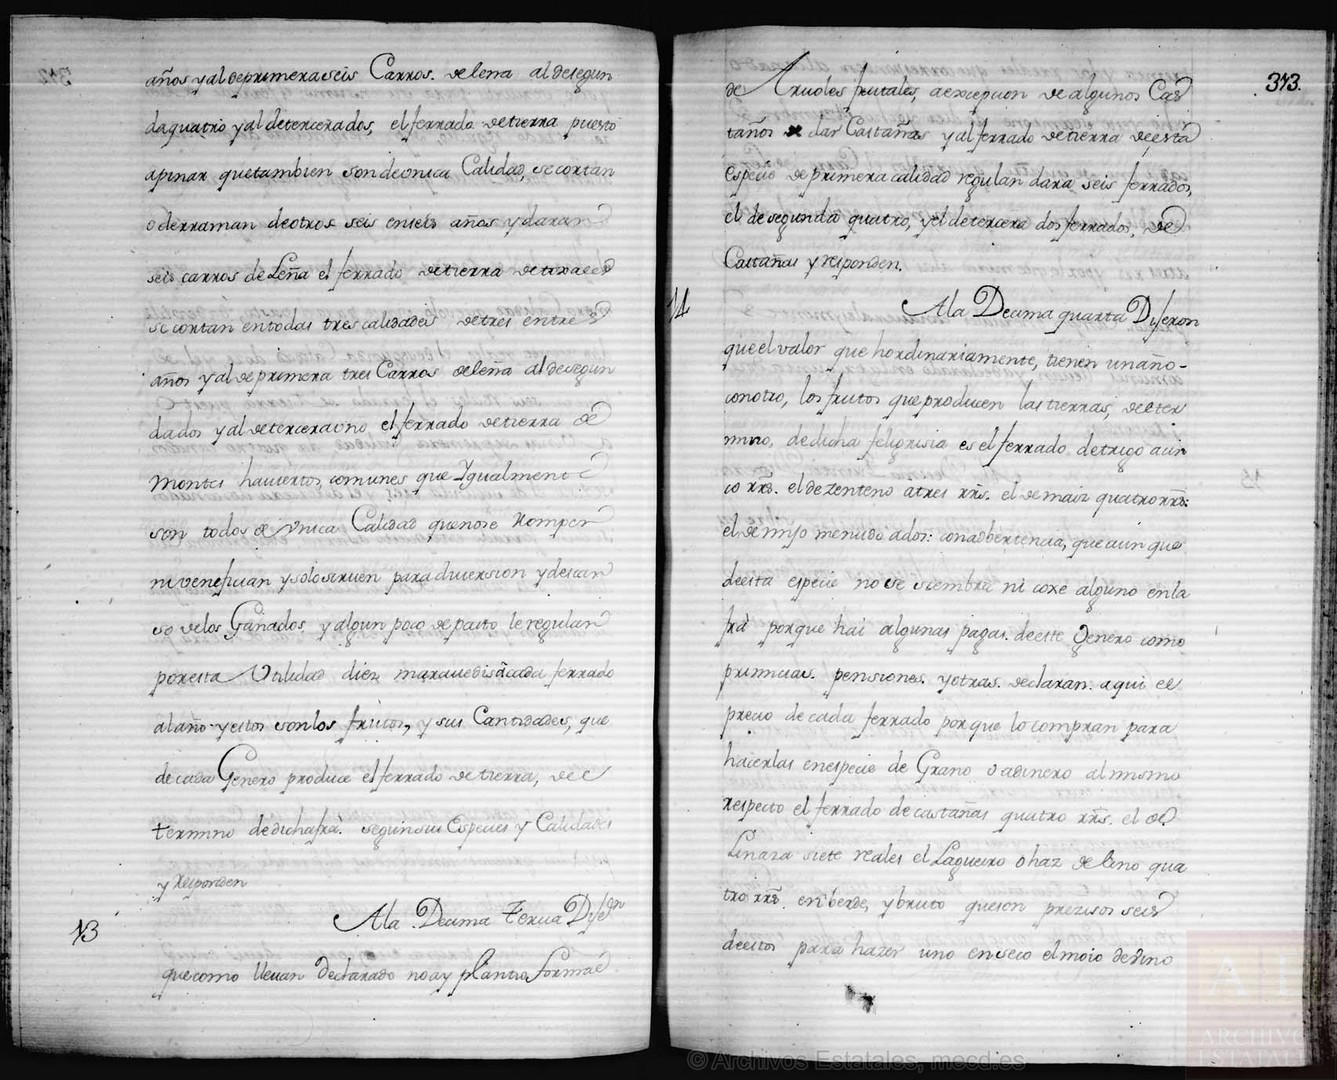 años y al de primera seis Carros de leña al de segun
da quatro y al de tercera dos, el ferrado de tierra puesto
a pinar que tambien son de vnica Calidad, se cortan
o derraman de otros seis en seis años y daran
seis carros de Leña el ferrado de tierra de
se cortan en todas tres calidades de tres en tres
años y al de primera tres Carros de leña al de segun
da dos y al de tercera vno, el ferrado de tierra de
montes haviertos comunes que Ygualmente
son todos de vnica Calidad que no se Rompen
ni venefician y solo siruen para diuersion y descan
so de los Ganados y algun poco de pasto le regulan
por esta Vtilidad diez marauedis a cada ferrado
al año y estos son los frutos, y sus Cantidades, que
de cada Genero produce el ferrado de tierra, de el
termino de dicha fra. segun sus Especies y Calidades
y Responden
13
A la Decima Tercia Dixeron
que como lleuan declarado no ay plantio forma
373.
de Aruoles frutales, a excepcion de algunos Cas
taños dar Castañas y al ferrado de tierra de esta
especie de primera calidad regulan dara seis ferrados,
el de segunda quatro, y el de tercera dos ferrados, de
Castañas y responden.
14
A la Decima quarta Dixeron
que el valor que hordinariamente, tienen un año
con otro, los frutos que producen las tierras, de el ter
mino, de dicha feligrisia es el ferrado de trigo a cin
co rrs. el de zenteno a tres rrs. el de maiz quatro rrs.
el de mijo menudo a dos: con adbertencia, que aunque
de esta especie no se siembra ni coxe alguno en la
fra porque hai algunas pagas de este Genero como
primicias. pensiones y otras. declaran aqui el
precio de cada ferrado por que lo compran para
hacerlas en especie de Grano o a dinero al mismo
respecto el ferrado de castañas quatro rrs. el de
Linaza siete reales el Lagueiro o haz de lino qua
tro rrs. en berde, y bruto que son precisos seis
de estos para hazer uno en seco el moio de vino
© Archivos Estatales, mecd.es
AE
ARCHIVOS
ESTATALES